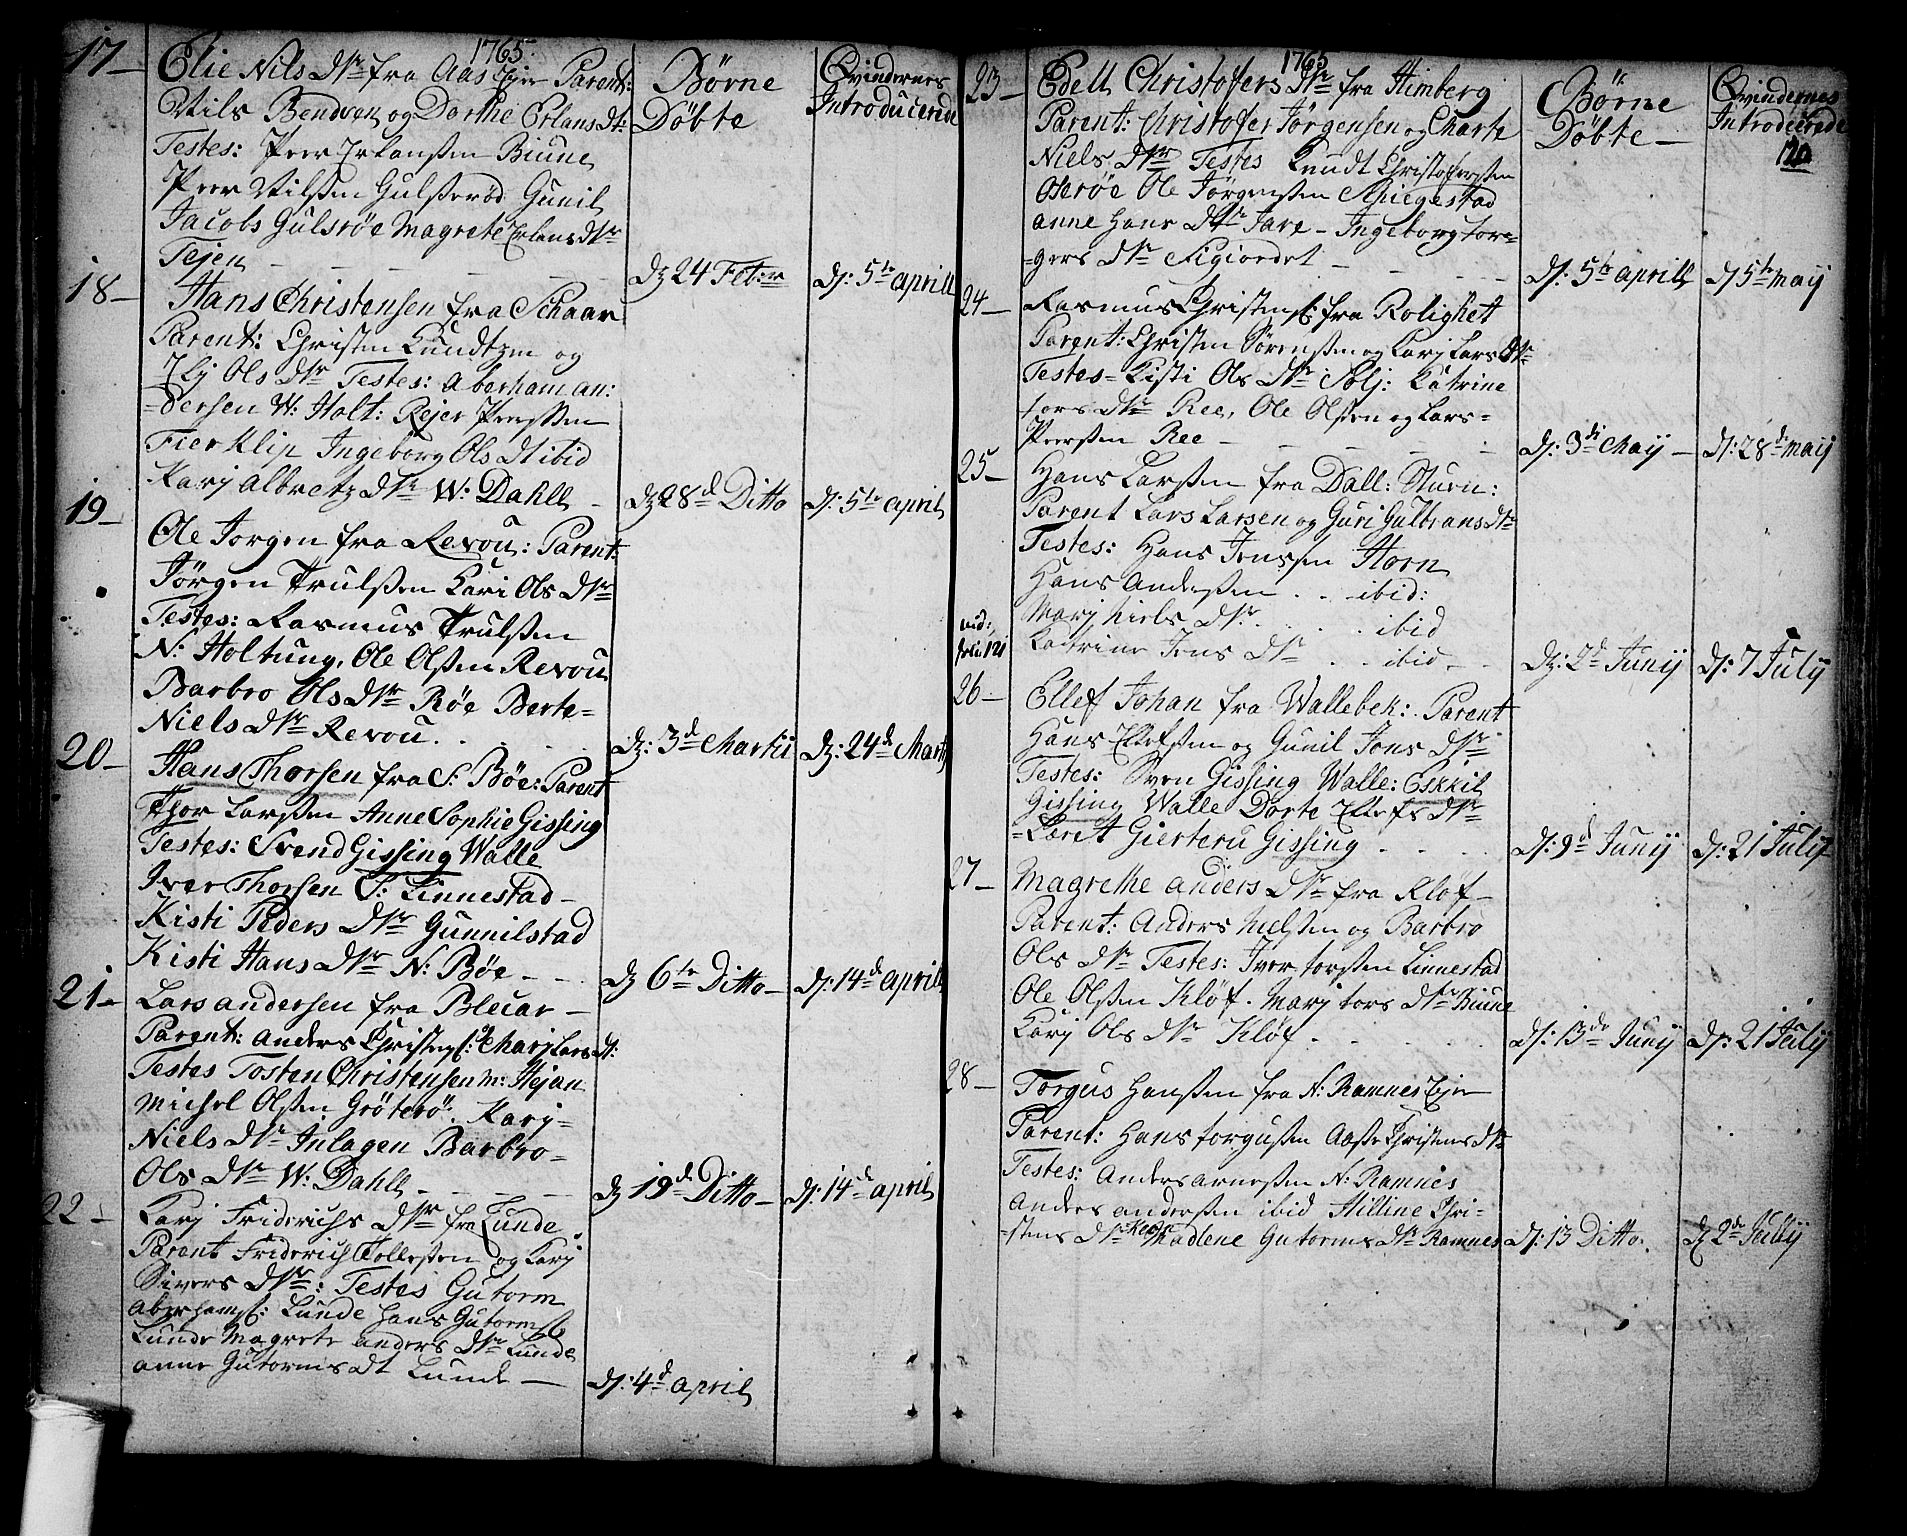 1765
17 –
Elie Nils Dtr fra Aas Eier Parent:
Nils Bendsen og Dorthe Erlans dt:
Testes: Peer Erlanssen Biune
Peer Nilssen Gulsserød Gunil
Jacobs Gulsrøe Magrete Erlens dtr
Tejen – – – – –
Børne
Döbte
Qvindernes
Introducerede
Dg 24 Febr:
Ds: 5te aprill
18 –
Hans Christensen fra Schaar
Parent: Christen Kundtzen og
Elj Ols Dtr Testes: Aberham an:
=dersen W: Holt: Rejer Peerssen
Fierklip Ingeborg Ols dt ibid
Karj Albretz dtr W: Dahll –
Dg 28d Ditto
Ds: 5te april
19 –
Ole Jorgen fra Revou: Parent:
Jörgen Trulssen Kari Ols Dtr
Testes: Rasmus Trulssen
N: Holtung, Ole Olssen Revou
Barbro Ols Dtr Røe Berte=
Niels Dtr Revou . .
Dg: 3d Martii
Dg: 24d Marti
20 –
Hans Thorsen fra S: Bøe: Parent
Thor Larssen Anne Sophie Gissing
Testes: Svend Gissing Walle
Iver Thorsen S: Linnestad –
Kisti Peders Dtr Gunnilstad
Kisti Hans Dtr N: Bøe – –
Dg 6te Ditto –
Ds: 14d aprill
21 –
Lars andersen fra Blecar –
Parent: anders Christens: Marj Lars dt:
Testes Tosten Christensen m: Hejan
Michel Olssen Gröterö: Karj=
Niels Dtr Inlagen Barbro=
Ols Dtr W: Dahll – – –
Dg 19d Ditto –
Ds: 14d april
22 –
Karj Friderichs Dtr fra Lunde
Parent Friderich Tollessen og Karj
Sivers Dtr: Testes Gutorm
Aberhams: Lunde Hans Gutorms
Lunde Magrete anders Dtr Lunde
anne Gutorms Dt Lunde –
Ds: 4d april
1765
23 –
Edell Christofers Dtr fra Himberg
Parent: Christofer Jörgensen og Marte
Niels Dtr Testes Knudt Christoferssen
Oserøe Ole Jörgenssen Spiegestad
anne Hans Dtr Jare – Ingeborg Tor=
=gers Dtr Figiordet – – –
Börne
Döbte –
Qvindernes
Introducerede
120
Ds: 5te aprill
Ds 5te maij
24 –
Rasmus Christens: fra Rolighet
Parent: Christen Sörenssen og Karj Lars Dtr
Testes = Kisti Ols Dtr Solj: Katrine
tors dtr Ree, Ole Olssen og Lars =
Peerssen Ree – – –
Ds: 3di Maij –
Ds: 28d maij
25 –
Hans Larssen fra Dall: Stuen:
Parent Lars Larsen og Guri Gulbrans dtr
Testes: Hans Jenssen Horn
Hans Anderssen . . ibid:
Marj Niels Dtr . . . . ibid
Katrine Jens Dtr . . ibid –
vid:
folii 121
Dg: 2d Junij
Ds: 7 Julij
26 –
Ellef Johan fra Wallebek: Parent
Hans Ellefssen og Gunil Jons Dtr
Testes: Sven Gissing Walle: Eskkil
Gissing Walle Dorte Ellefs Dtr
=Karet Gierteru Gissing . . .
Ds: 9d Junij
Ds: 21 Julij
27 –
Magrethe anders Dtr fra Kløf –
Parent: Anders Nielssen og Barbro
Ols Dtr Testes: Iver torssen Linnestad
Ole Olssen Kløf. Marj tors Dtr Biune
Karj Ols Dtr Kløf . . . . .
Ds: 13de Junij
Ds: 21 Julij
28 –
Torgus Hanssen fra N: Ramnes Ejer
Parent: Hans torgussen Aasse Christens dtr
Testes: Anders arnessen N: Ramnes
Anders anderssen ibid Hilline Chri=
=stens Dtr Madlene Gutorms Dtr Ramnes
Ds: 13 Ditto.
Dg 2de Julij